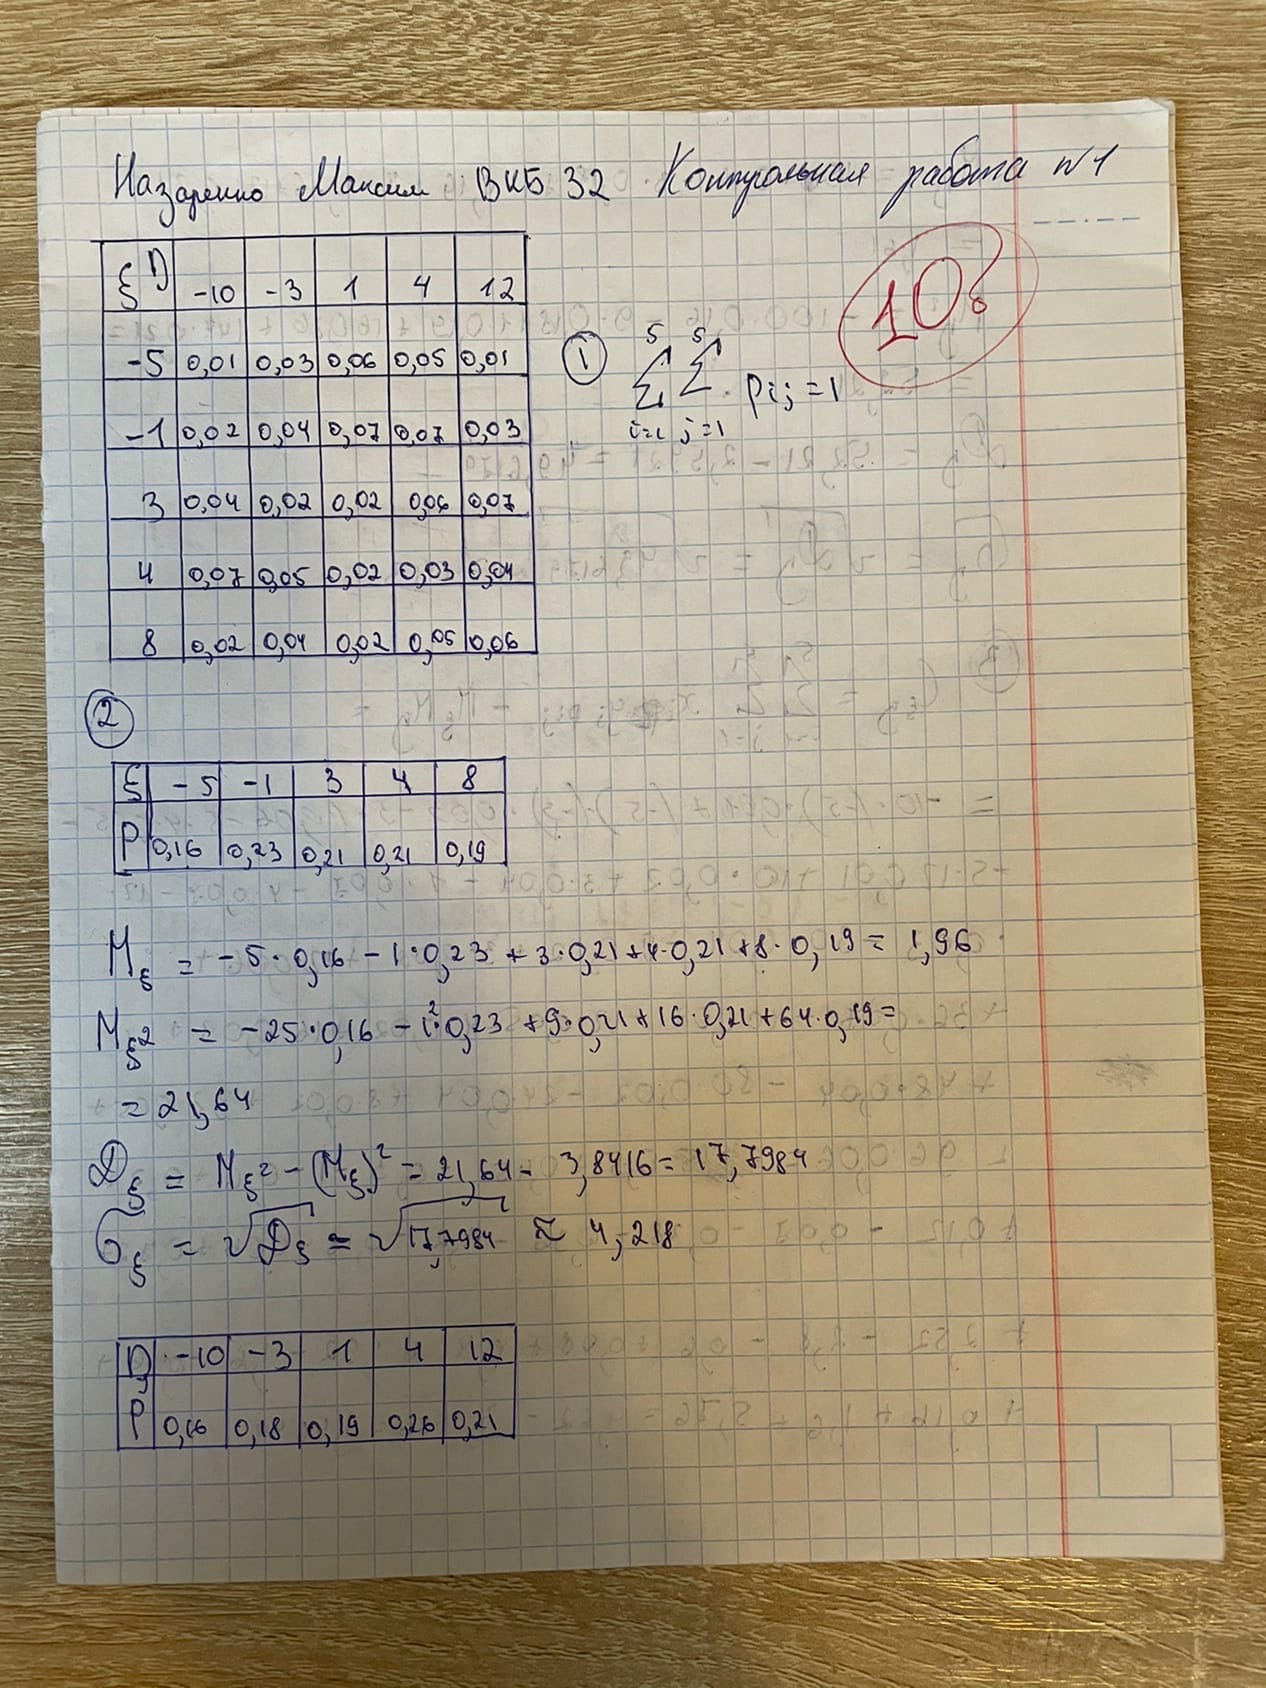 Назаренко Максим ВКБ 32 Контрольная работа №1
10б
ξ η -10 -3 1 4 12
-5 0,01 0,03 0,06 0,05 0,01
-1 0,02 0,04 0,07 0,07 0,03
3 0,04 0,02 0,02 0,06 0,07
4 0,07 0,05 0,02 0,03 0,04
8 0,02 0,04 0,02 0,05 0,06
① 5 5
Σ Σ pij = 1
i=1 j=1
②
ξ -5 -1 3 4 8
P 0,16 0,23 0,21 0,21 0,19
Mξ = -5·0,16 - 1·0,23 + 3·0,21 + 4·0,21 + 8·0,19 = 1,96
Mξ² = -25·0,16 - 1²·0,23 + 9·0,21 + 16·0,21 + 64·0,19 =
= 21,64
Dξ = Mξ² - (Mξ)² = 21,64 - 3,8416 = 17,7984
σξ = √Dξ = √17,7984 ≈ 4,218
η -10 -3 1 4 12
P 0,16 0,18 0,19 0,26 0,21